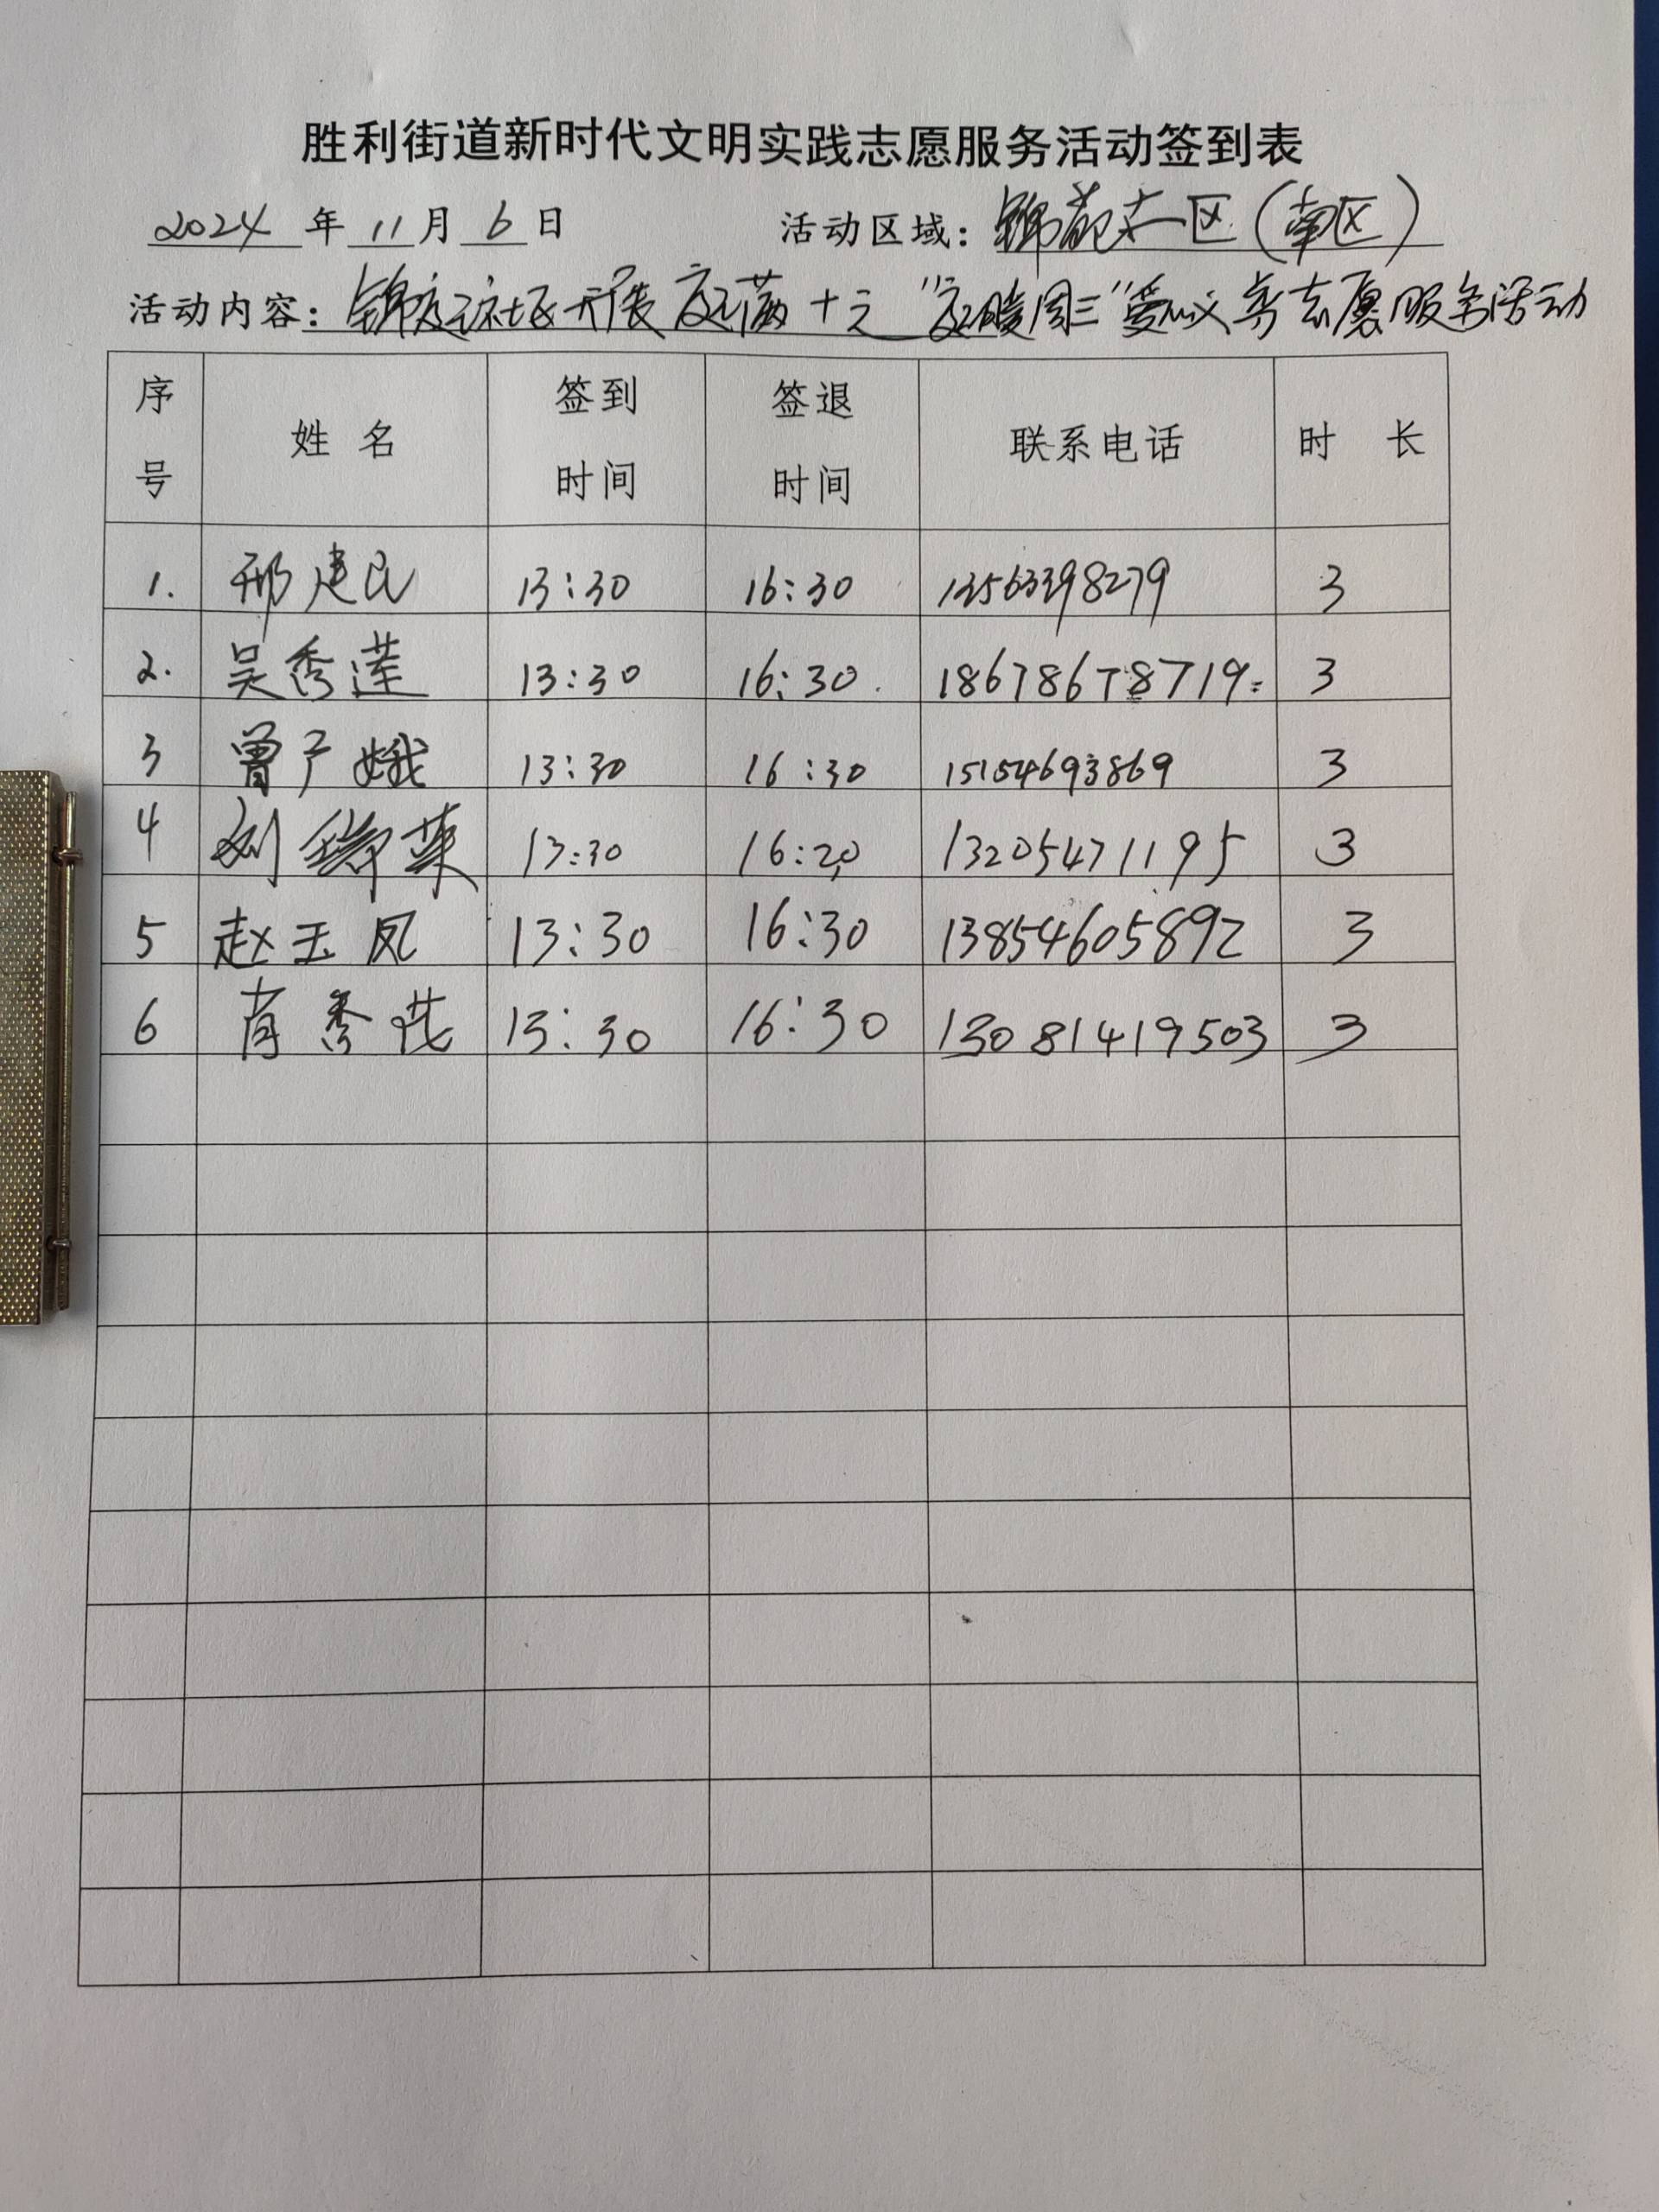 胜利街道新时代文明实践志愿服务活动签到表
2024 年 11 月 6 日 活动区域：锦苑一区（南区）
活动内容：锦庭社区开展庭满十元“庭暖周三”爱心义务志愿服务活动
序号 姓名 签到时间 签退时间 联系电话 时长
1. 邢建民 13:30 16:30 13563398279 3
2. 吴秀莲 13:30 16:30 18678678719 3
3 曾广娥 13:30 16:30 15154693869 3
4 刘瑞菜 13:30 16:20 13205471195 3
5 赵玉凤 13:30 16:30 13854605892 3
6 肖秀花 13:30 16:30 13081419503 3